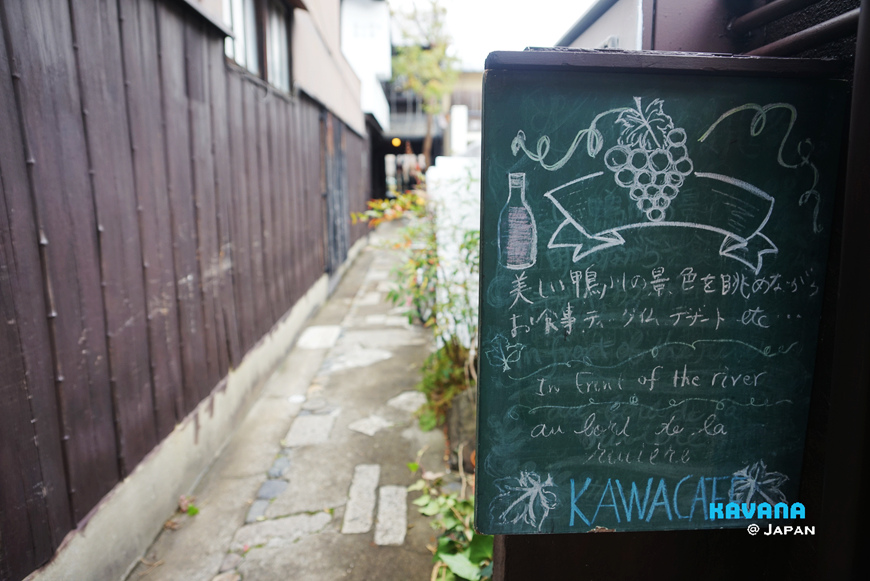 美しい鴨川の景色を眺めながら
お食事ティータイム デザート etc…
In Front of the river
au bord de la
rivière
KAWACAFE
KAVANA
@ JAPAN